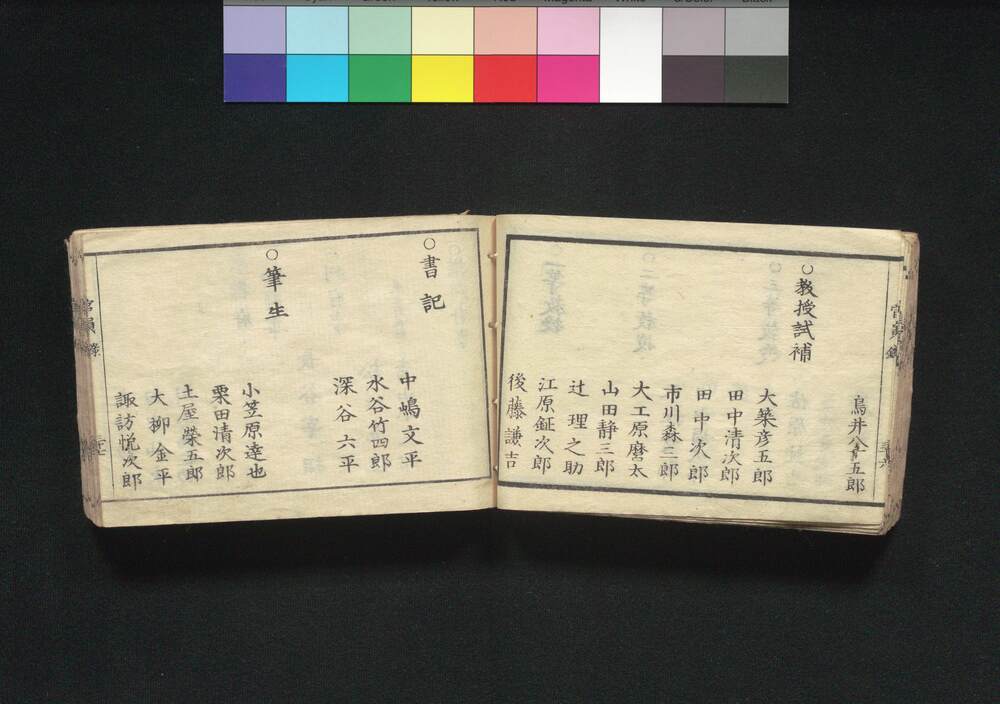 鳥井八十五郎
○教授試補
大築彦五郎
田中清次郎
田中次郎
市川森三郎
大工原麿太
山田静三郎
辻理之助
江原鉦次郎
後藤謙吉
○書記
中嶋文平
水谷竹四郎
深谷六平
○筆生
小笠原達也
栗田清次郎
土屋榮五郎
大柳金平
諏訪悦次郎
官員錄